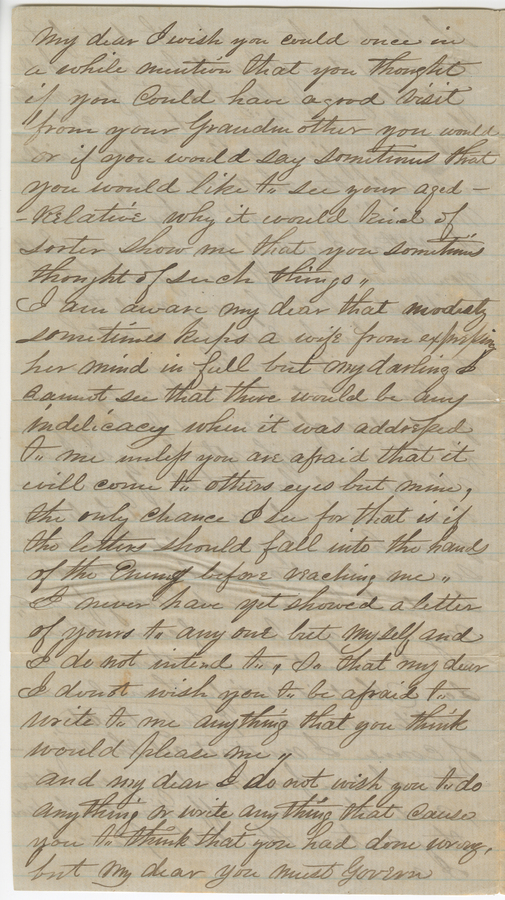 My dear I wish you could once in
a while mention that you thought
if you Could have a good visit
from your Grandmother you would
or if you would say sometimes that
you would like to" see your aged -
- Relative why it would kind of
sorter show me that you sometims
thought of such things "
I am aware my dear that modesty
sometimes keeps a wife from expressing
her mind in full but my darling I
cannot see that there would be any
indelicacy when it was addressed
to" me unless you are afraid that it
will come to" others eyes but mine,
the only chance I see for that is if
the letters should fall into the hands
of the Enemy before reaching me "
I never have yet showed a letter
of yours to" any one but myself and
I do not intend to", So that my dear
I do not wish you to" be afraid to"
write to" me anything that you think
would please me "
and my dear I do not wish you to" do
anything or write any thing that cause
you to" think that you had done wrong,
but my dear you must Govern